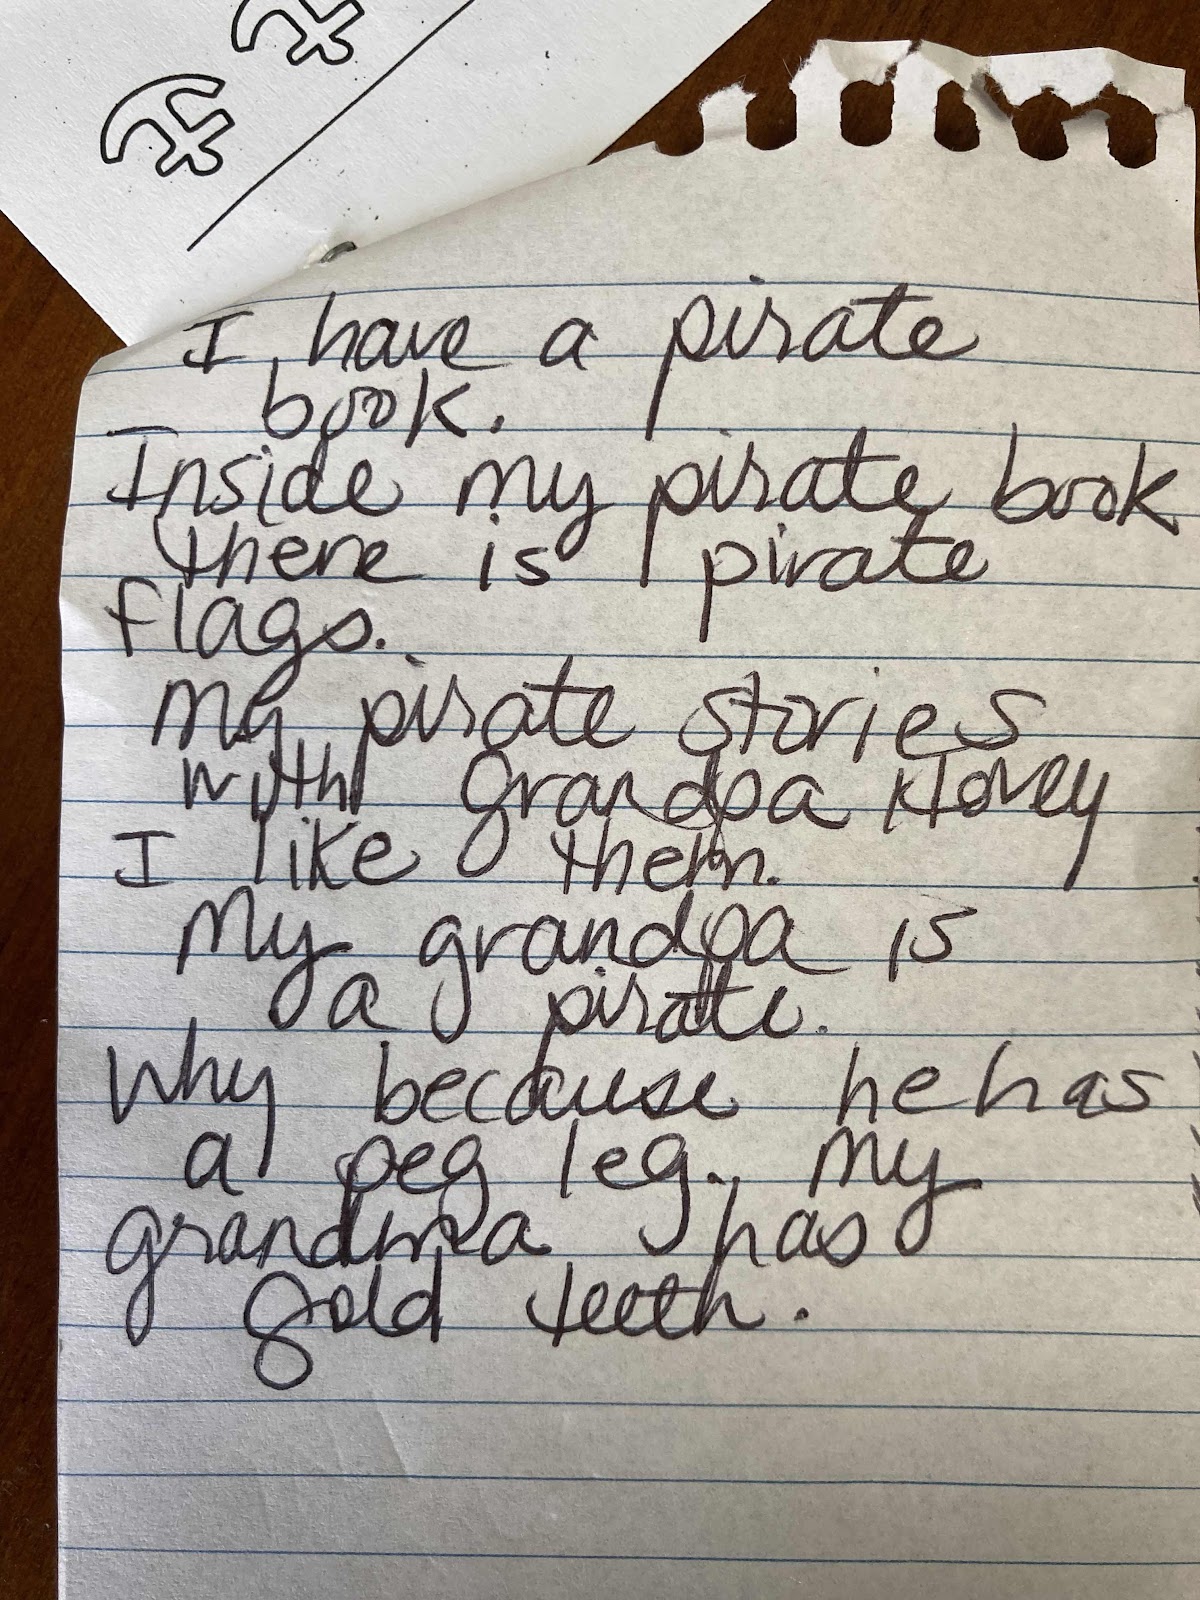 I have a pirate
book.
Inside my pirate book
there is pirate
flags.
My pirate stories
with grandpa Hovey
I like them.
My grandpa is
a pirate.
Why because he has
a peg leg. My
grandma has
gold teeth.